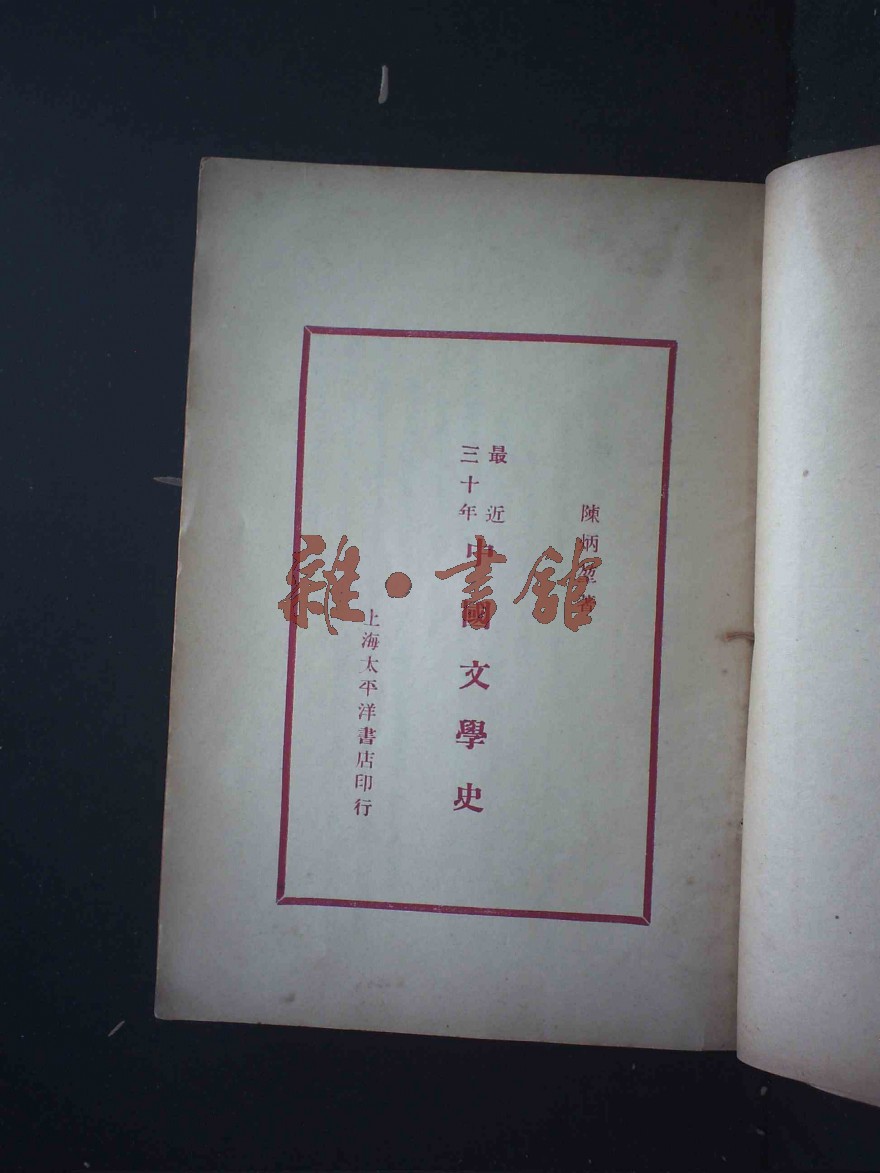 陳炳堃著
最近
三十年
中國文學史
上海太平洋書店印行
雜·書館